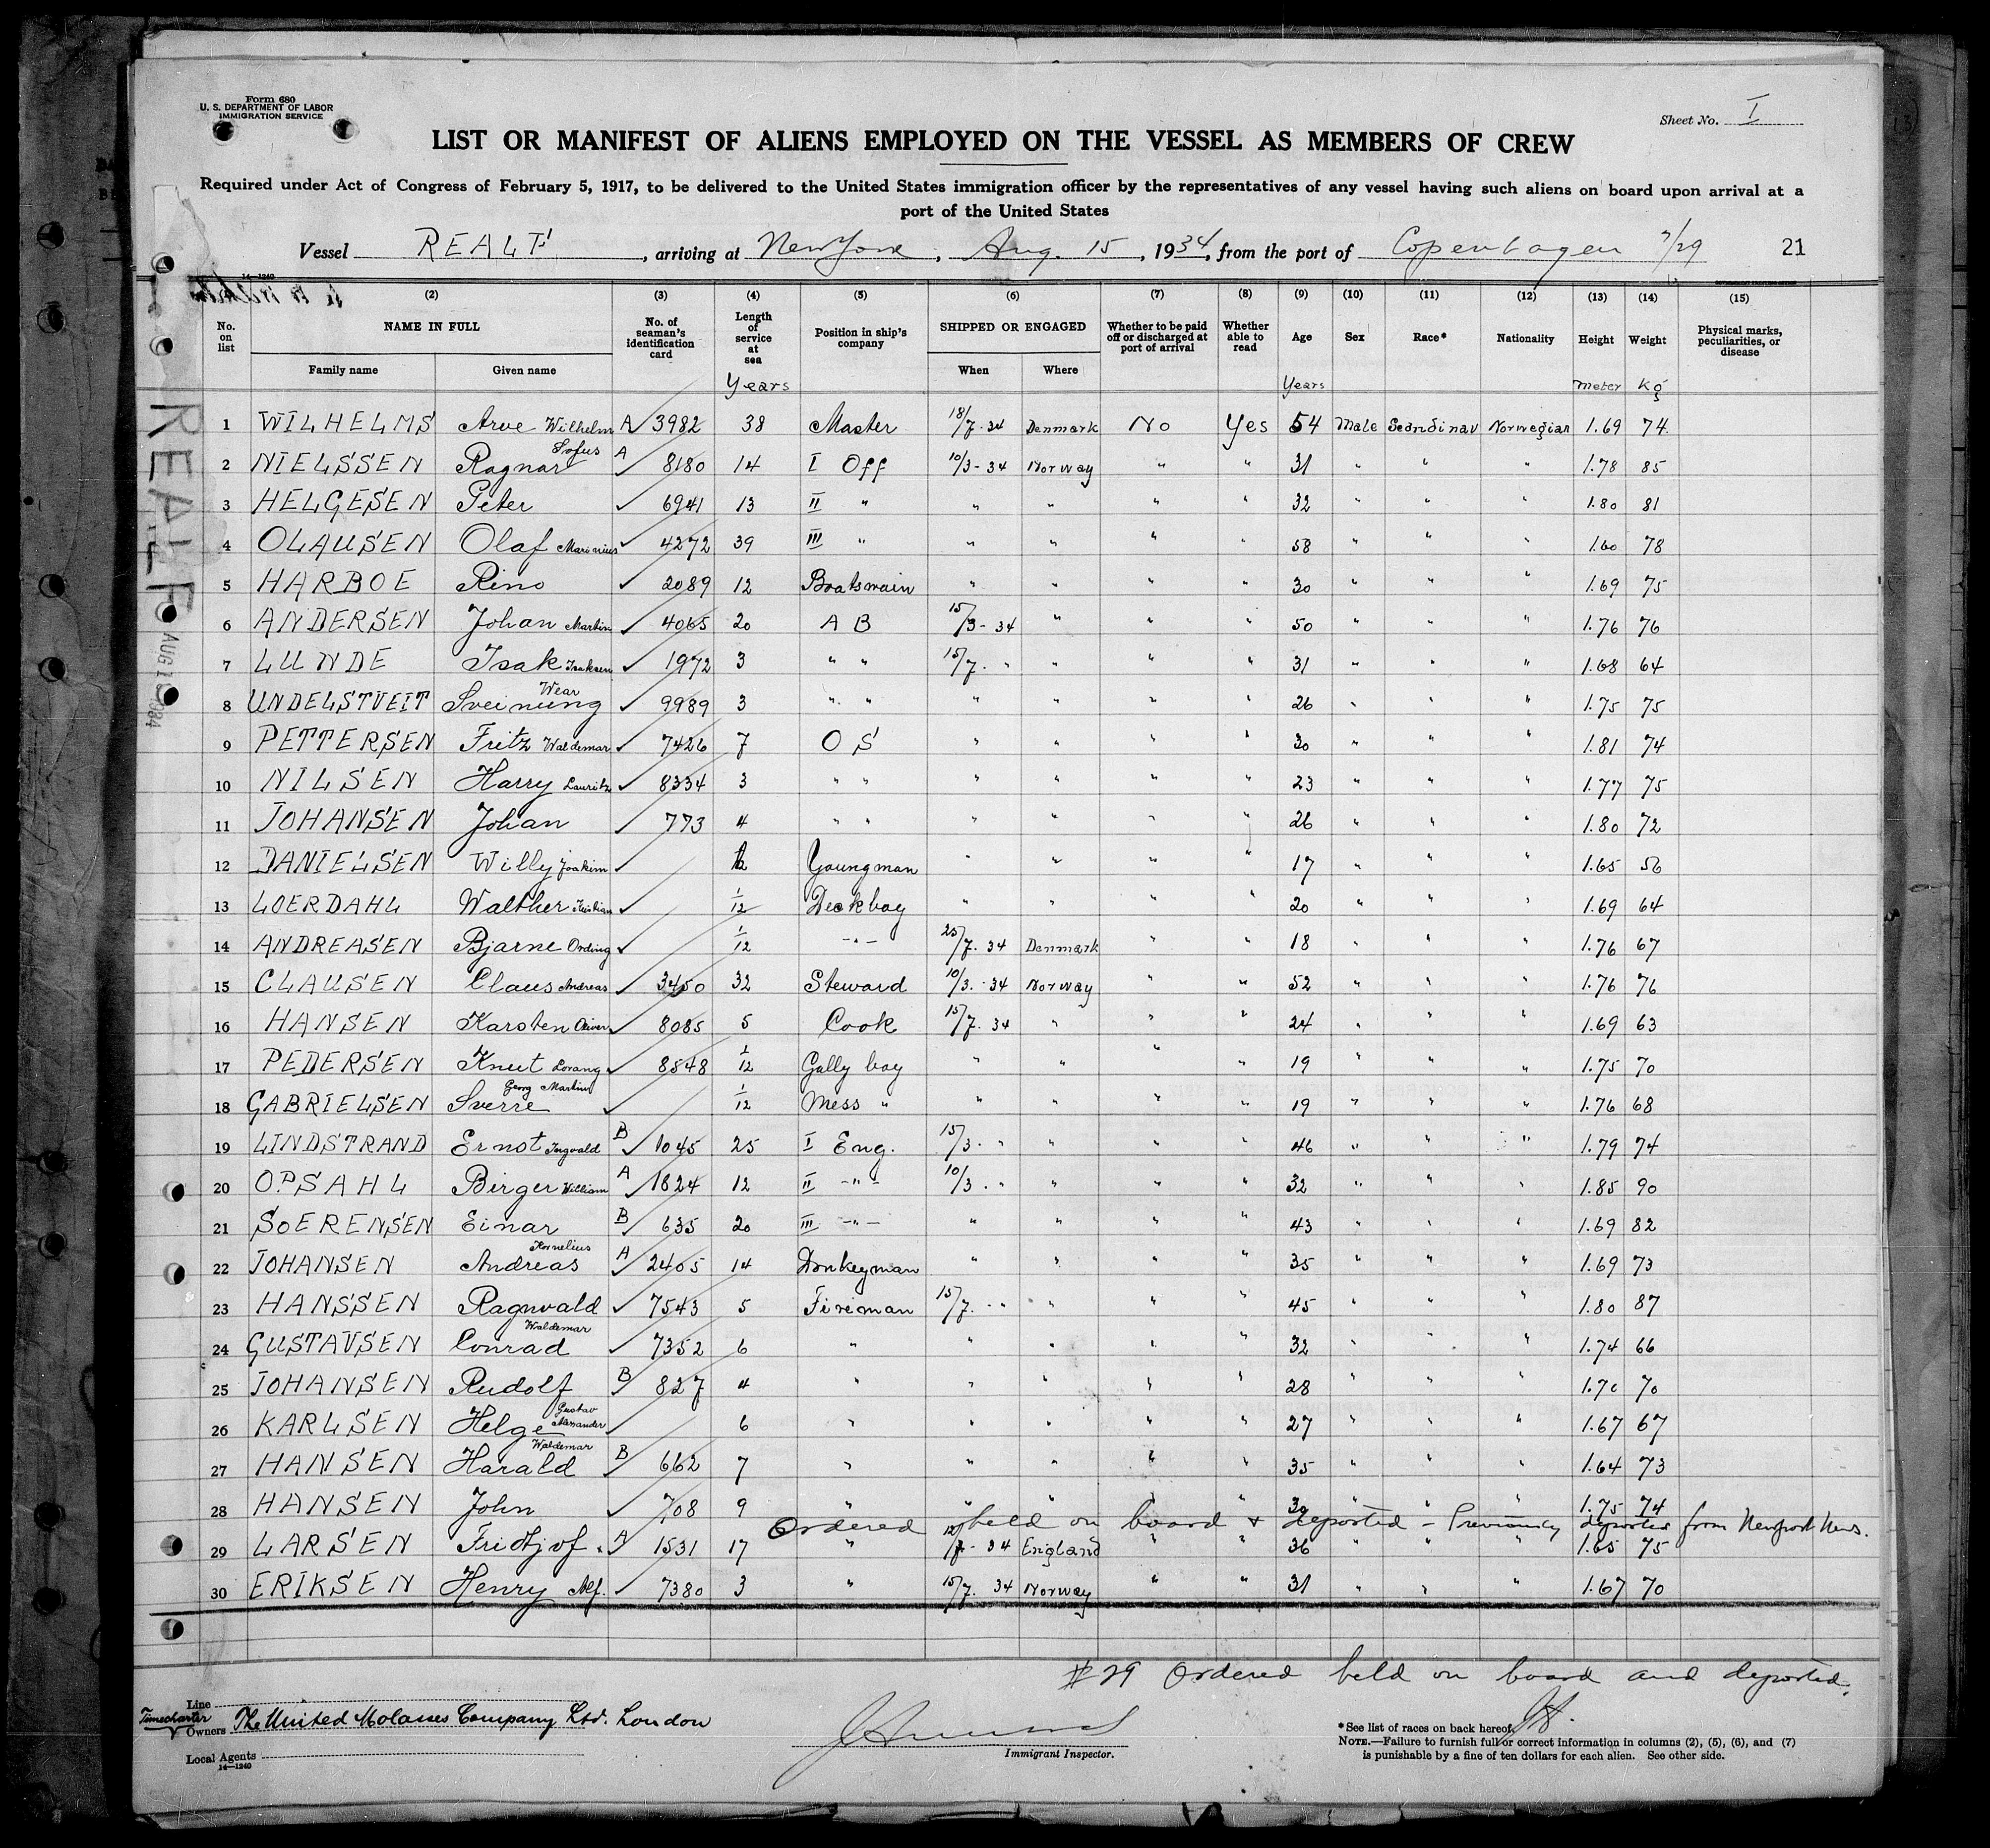 Form 680
U. S. DEPARTMENT OF LABOR
IMMIGRATION SERVICE
Sheet No. I
LIST OR MANIFEST OF ALIENS EMPLOYED ON THE VESSEL AS MEMBERS OF CREW
Required under Act of Congress of February 5, 1917, to be delivered to the United States immigration officer by the representatives of any vessel having such aliens on board upon arrival at a
port of the United States
Vessel REALF, arriving at New York, Aug. 15, 1934, from the port of Copenhagen 7/29 21
14—1240
(2) (3) (4) (5) (6) (7) (8) (9) (10) (11) (12) (13) (14) (15)
No. on list NAME IN FULL Family name Given name No. of seaman's identification card Length of service at sea Position in ship's company SHIPPED OR ENGAGED When Where Whether to be paid off or discharged at port of arrival Whether able to read Age Sex Race* Nationality Height Weight Physical marks, peculiarities, or disease
Years Years meter kg
1 WILHELMS Arve Wilhelm A 3982 38 Master 18/7-34 Denmark No Yes 54 Male Scandinav Norwegian 1.69 74
2 NIELSSEN Ragnar Sofus A 8180 14 I Off 10/3-34 Norway " " 31 " " " 1.78 85
3 HELGESEN Peter 6941 13 II " " " " " 32 " " " 1.80 81
4 OLAUSEN Olaf Marinius 4272 39 III " " " " " 58 " " " 1.60 78
5 HARBOE Rino 2089 12 Boatswain " " " " 30 " " " 1.69 75
6 ANDERSEN Johan Martin 4065 20 A B 15/3-34 " " " 50 " " " 1.76 76
7 LUNDE Isak Isaksen 1972 3 " " 15/7. " " " " 31 " " " 1.68 64
8 UNDELSTVEIT Sveinung Wear 9989 3 " " " " " " 26 " " " 1.75 75
9 PETTERSEN Fritz Waldemar 7426 7 O S " " " " 30 " " " 1.81 74
10 NILSEN Harry Lauritz 8334 3 " " " " " " 23 " " " 1.77 75
11 JOHANSEN Johan 773 4 " " " " " " 26 " " " 1.80 72
12 DANIELSEN Willy Joakim Youngman " " " " 17 " " " 1.65 56
13 LOERDAHL Walther Kristian 1/12 Deckboy " " " " 20 " " " 1.69 64
14 ANDREASEN Bjarne Ording 1/12 -"- 25/7. 34 Denmark " " 18 " " " 1.76 67
15 CLAUSEN Claus Andreas 3450 32 Steward 10/3.-34 Norway " " 52 " " " 1.76 76
16 HANSEN Karsten Oliver 8085 5 Cook 15/7. 34 " " " 24 " " " 1.69 63
17 PEDERSEN Knut Lorang 8548 1/12 Gally boy " " " " 19 " " " 1.75 70
18 GABRIELSEN Sverre Georg Martin 1/12 Mess " " " " " 19 " " " 1.76 68
19 LINDSTRAND Ernst Ingvald B 1045 25 I Eng. 15/3. " " " " 46 " " " 1.79 74
20 OPSAHL Birger William A 1824 12 II -"- 10/3. " " " " 32 " " " 1.85 90
21 SOERENSEN Einar B 635 20 III -"- " " " " 43 " " " 1.69 82
22 JOHANSEN Andreas Kornelius A 2405 14 Donkeyman " " " " 35 " " " 1.69 73
23 HANSSEN Ragnvald 7543 5 Fireman 15/7. " " " " 45 " " " 1.80 87
24 GUSTAVSEN Conrad Waldemar 7352 6 " " " " " 32 " " " 1.74 66
25 JOHANSEN Rudolf B 827 4 " " " " " 28 " " " 1.70 70
26 KARLSEN Helge Gustav Alexander 6 " " " " " 27 " " " 1.67 67
27 HANSEN Harald Waldemar B 662 7 " " " " " 35 " " " 1.64 73
28 HANSEN John 708 9 " " " " " 30 " " " 1.75 74
Ordered held on board & deported – Previously deported from Newport News.
29 LARSEN Fridtjof A 1531 17 " 34 England " " 36 " " " 1.65 75
30 ERIKSEN Henry Alf. 7380 3 " 15/7. 34 Norway " " 31 " " " 1.67 70
#29 Ordered held on board and deported.
REALF
AUG 1934
Line
Timecharter Owners The United Molasses Company Ltd. London
Local Agents
14—1240
Immigrant Inspector.
*See list of races on back hereof.
NOTE.—Failure to furnish full or correct information in columns (2), (5), (6), and (7)
is punishable by a fine of ten dollars for each alien. See other side.